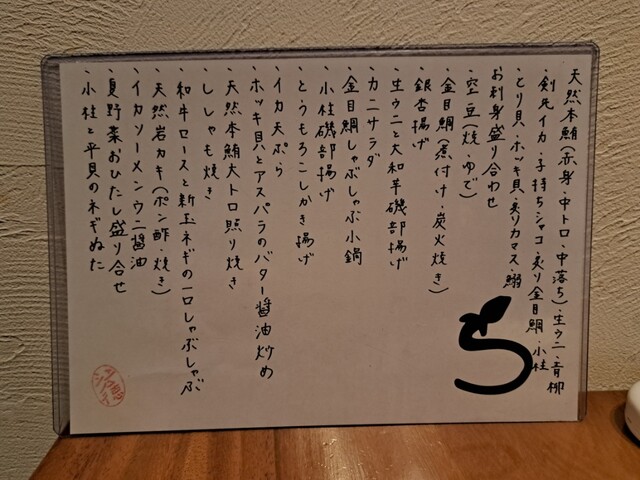 天然本鮪(赤身・中トロ・中落ち)・生ウニ・青柳
・剣先イカ・子持ちシャコ・炙り金目鯛・小柱
・とり貝・ホッキ貝・炙りカマス・鰯
お刺身盛り合わせ
・空豆(焼・ゆで)
・金目鯛(煮付け・炭火焼き)
・銀杏揚げ
・生ウニと大和芋磯部揚げ
・カニサラダ
・金目鯛しゃぶしゃぶ小鍋
・小柱磯部揚げ
・とうもろこしかき揚げ
・イカ天ぷら
・ホッキ貝とアスパラのバター醤油炒め
・天然本鮪大トロ照り焼き
・ししゃも焼き
・和牛ロースと新玉ネギの一口しゃぶしゃぶ
・天然岩カキ(ポン酢・焼き)
・イカソーメンウニ醤油
・夏野菜おひたし盛り合せ
・小柱と平貝のネギぬた
ち